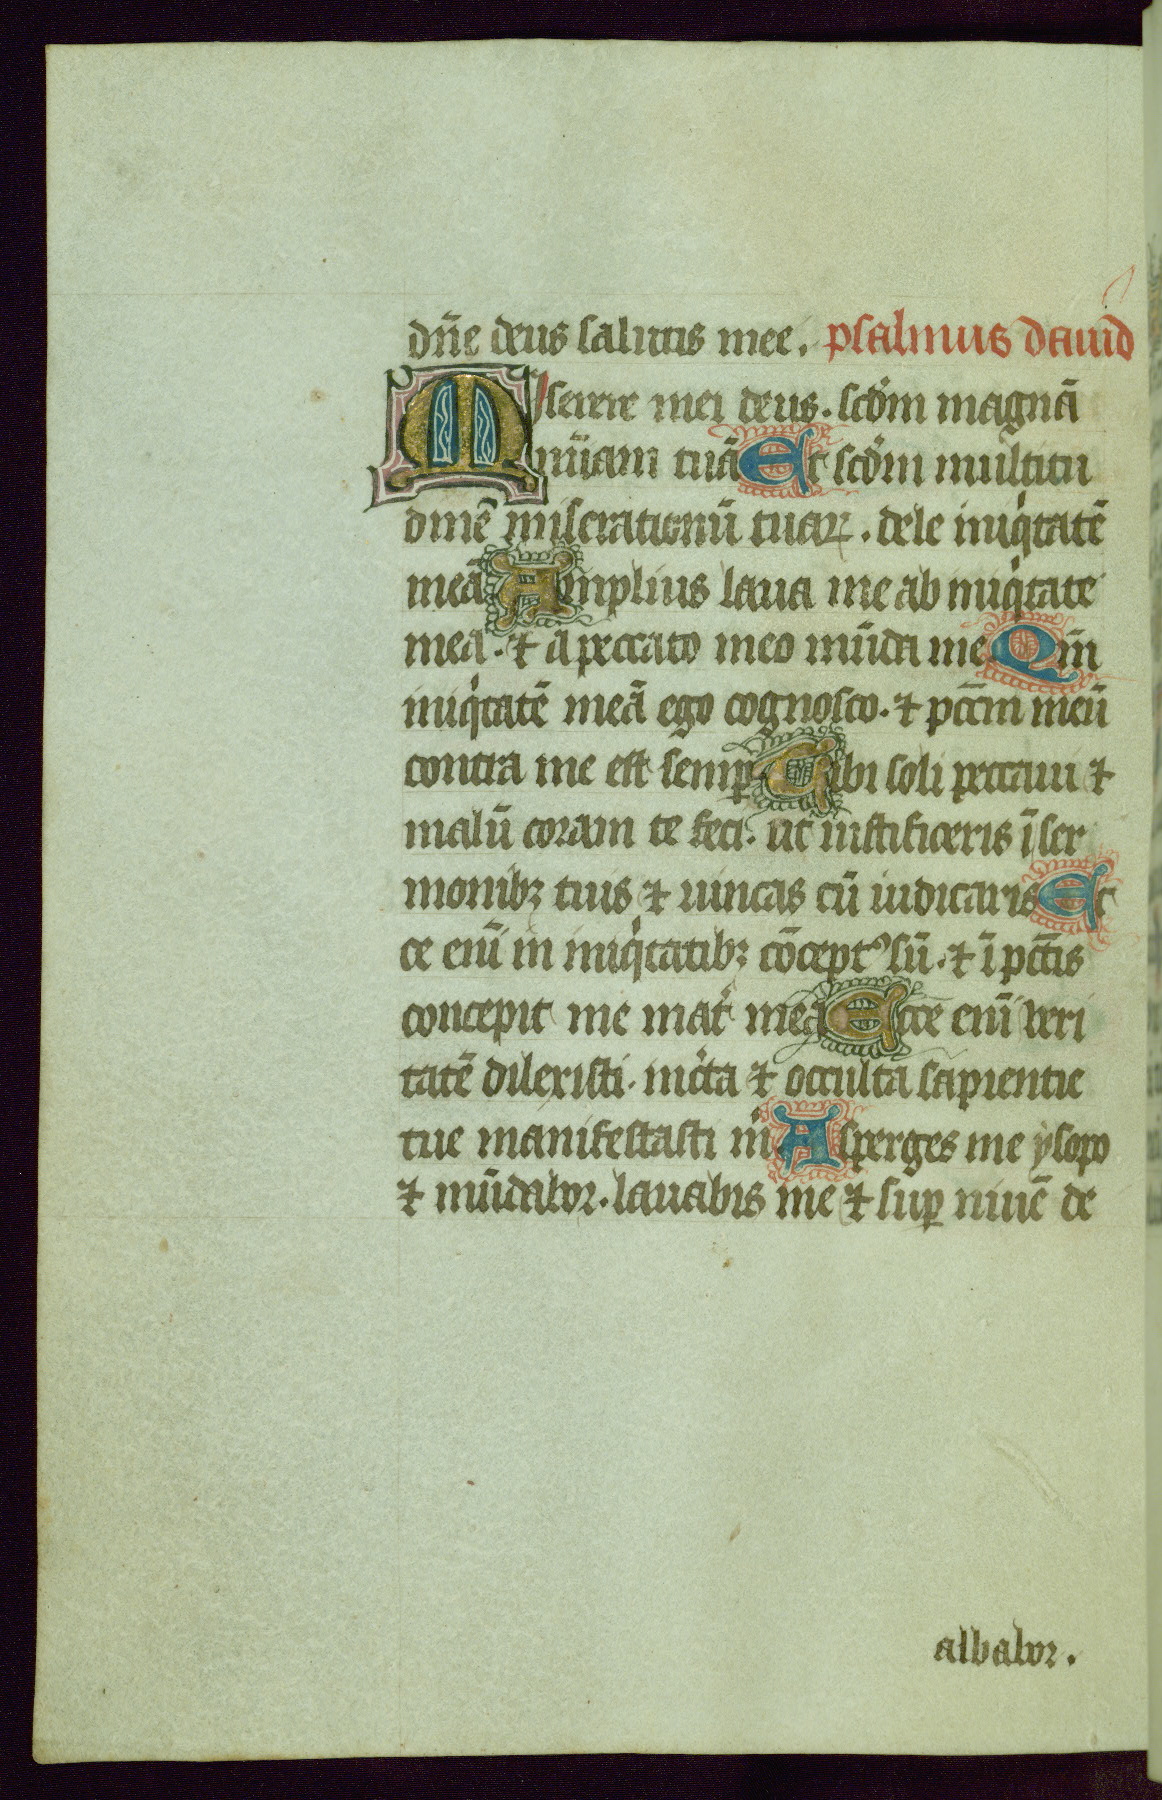 dn̄e deus salutis mee. psalmus dauid
Miserere mei deus. scd̄m magnā
mīam tuā Et scd̄m multitu
dinē miserationū tuaꝝ. dele iniqͥtatē
meā Amplius laua me ab iniqͥtate
mea. ⁊ a peccato meo mūda me Qm̄
iniqͥtatē meā ego cognosco. ⁊ pccm̄ meū
contra me est semꝑ Tibi soli peccaui ⁊
malū coram te feci. ut iustificeris ī ser
monibꝫ tuis ⁊ uincas cū iudicaris Ec
ce enī in iniqͥtatibꝫ cōceptꝰ sū. ⁊ ī pctīs
concepit me mat̄ mea Ecce enī ueri
tatē dilexisti. incͬta ⁊ occulta sapientie
tue manifestasti m̄ Asperges me ysopo
⁊ mūdabor. lauabis me ⁊ suꝑ niuē de
albabor.